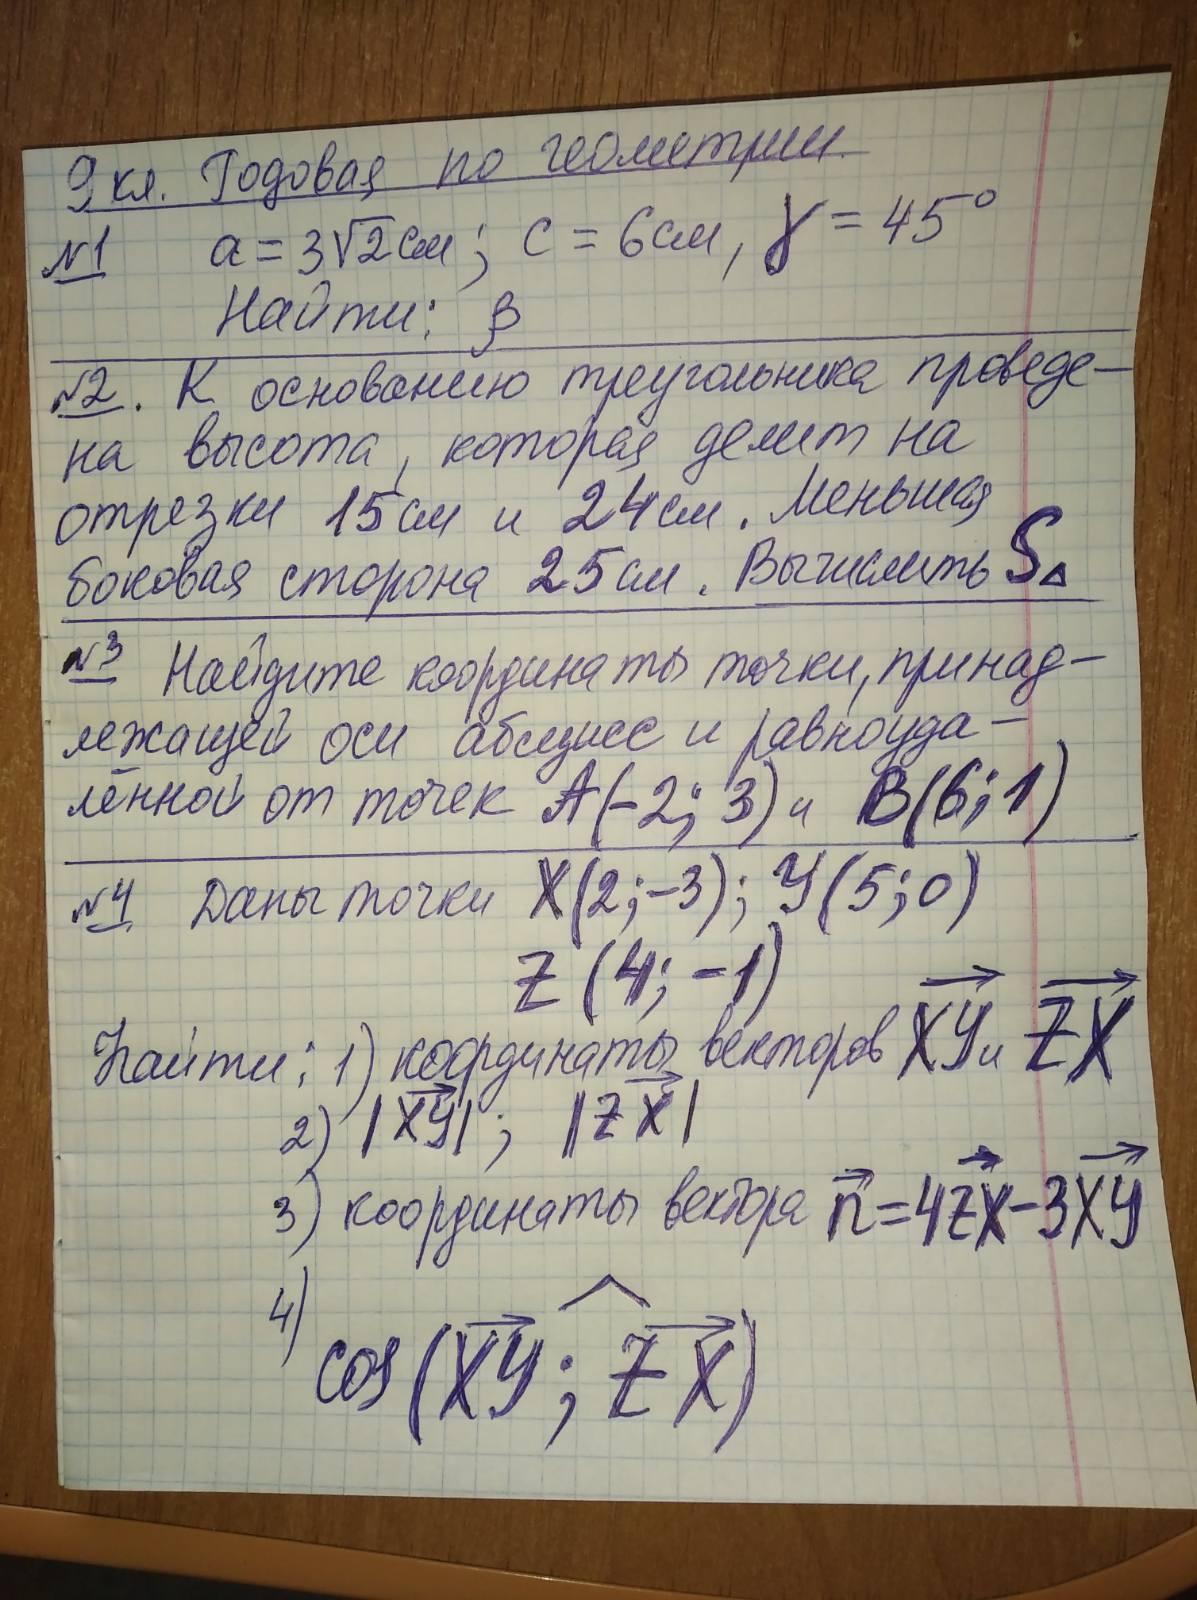 9 кл. Годовая по геометрии.
№1 a = 3√2 см; c = 6 см, γ = 45°
Найти: β
№2. К основанию треугольника проведе-
на высота, которая делит на
отрезки 15 см и 24 см. Меньшая
боковая сторона 25 см. Вычислить S△
№3 Найдите координаты точки, принад-
лежащей оси абсцисс и равноуда-
лённой от точек A(-2; 3) и B(6; 1)
№4 Даны точки X(2; -3); Y(5; 0)
Z(4; -1)
Найти: 1) координаты векторов XY⃗ и ZX⃗
2) |XY⃗|; |ZX⃗|
3) координаты вектора n⃗ = 4ZX⃗ - 3XY⃗
4)
cos(XY⃗ ;^ ZX⃗)